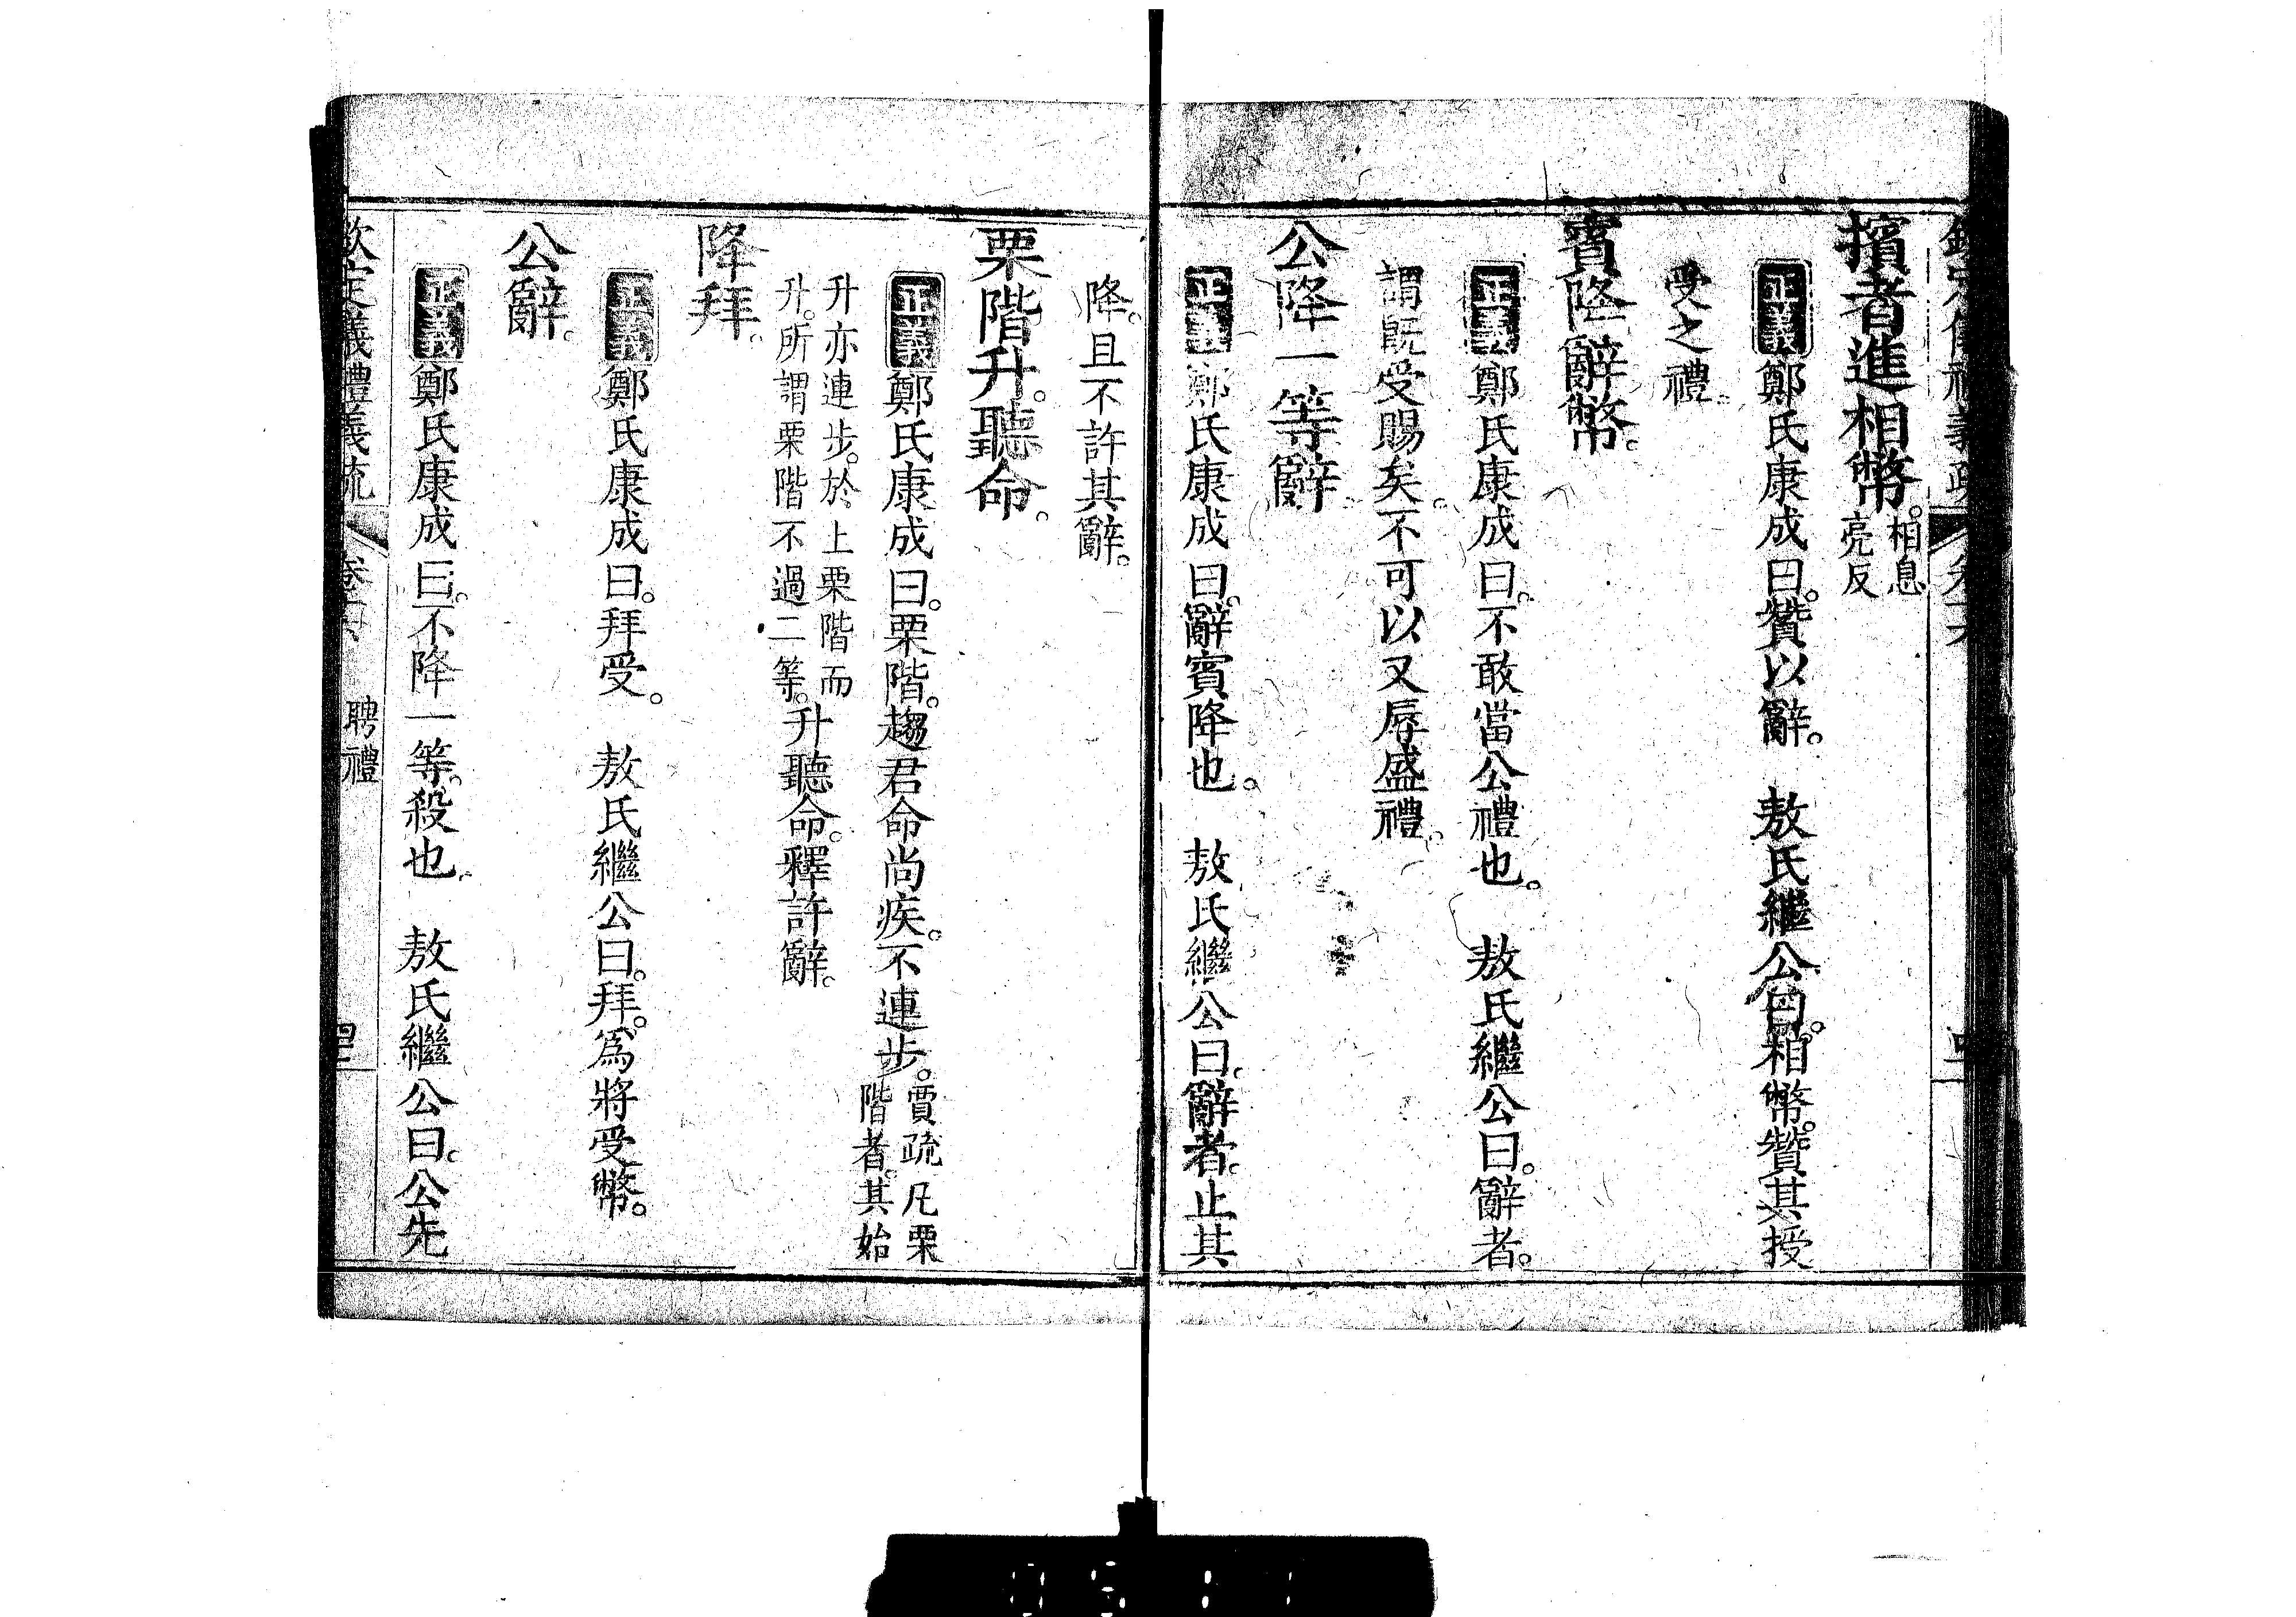 擯者進相幣。相息亮反
正義鄭氏康成曰。贊以辭。 敖氏繼公曰。相幣。贊其授
受之禮。
賓降辭幣。
正義鄭氏康成曰。不敢當公禮也。 敖氏繼公曰。辭者。
謂既受賜矣。不可以又辱盛禮。
公降一等辭
正義鄭氏康成曰。辭賓降也。 敖氏繼公曰。辭者。止其
降。且不許其辭。
栗階升。聽命。
正義鄭氏康成曰。栗階。趨君命尚疾。不連步。賈疏凡栗階者。其始
升亦連步。於上栗階而升。所謂栗階不過二等。升聽命。釋許辭。
降拜。
正義鄭氏康成曰。拜受。 敖氏繼公曰。拜。爲將受幣。
公辭。
正義鄭氏康成曰。不降一等。殺也。 敖氏繼公曰。公先
欽定儀禮義疏 聘禮